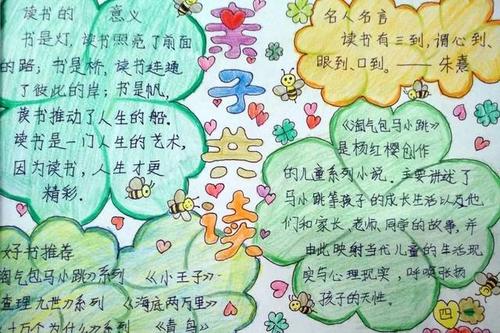 读书的 意义
书是灯,读书照亮了前面
的路;书是桥,读书连通
了彼此的岸;书是帆,
读书推动了人生的船.
读书是一门人生的艺术,
因为读书,人生才更
精彩.
亲子共读
名人名言
读书有三到,谓心到、
眼到、口到。——朱熹
《淘气包马小跳》
是杨红樱创作
的儿童系列小说,主要讲述了
马小跳等孩子的成长生活以及他
们和家长,老师,同学的故事,并
由此映射当代儿童的生活现
实与心理现实,呼唤张扬
孩子的天性.
好书推荐
淘气包马小跳》系列 《小王子》
查理九世》系列 《海底两万里》
十万个为什么》系列 《青鸟》
四一